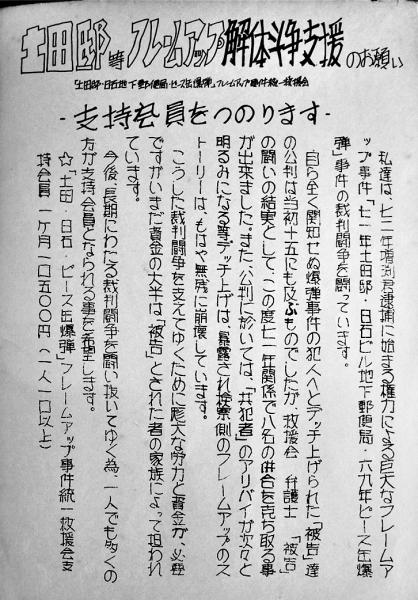 土田邸等フレームアップ解体斗争支援のお願い
「土田邸・日石地下郵便局・ピース缶爆弾」フレームアップ事件統一救援会
-支持会員をつのります-
私達は、七二年増渕君逮捕に始まる権力による巨大なフレームア
ップ事件「七一年土田邸・日石ビル地下郵便局・六九年ピース缶爆
弾」事件の裁判闘争を闘っています。
自ら全く関知せぬ爆弾事件の犯人へとデッチ上げられた「被告」達
の公判は当初十五にも及ぶものでしたが、救援会 弁護士 「被告」
の闘いの結実として、この度七一年関係で八名の併合を克ち取る事
が出来ました。また、公判に於いては、「共犯者」のアリバイが次々と
明るみになる等デッチ上げは、暴露され検察側のフレームアップのス
トーリーは、もはや無残に崩壊しています。
こうした裁判闘争を支えてゆくために厖大な労力と資金が、必要
ですがいまだ資金の大半は「被告」とされた者の家族によって担われ
ています。
今後、長期にわたる裁判闘争を闘い抜いてゆく為、一人でも多くの
方が支持会員となられる事を希望します。
☆「土田・日石・ピース缶爆弾」フレームアップ事件統一救援会支
持会員 一ケ月一口五〇〇円(一人一口以上)